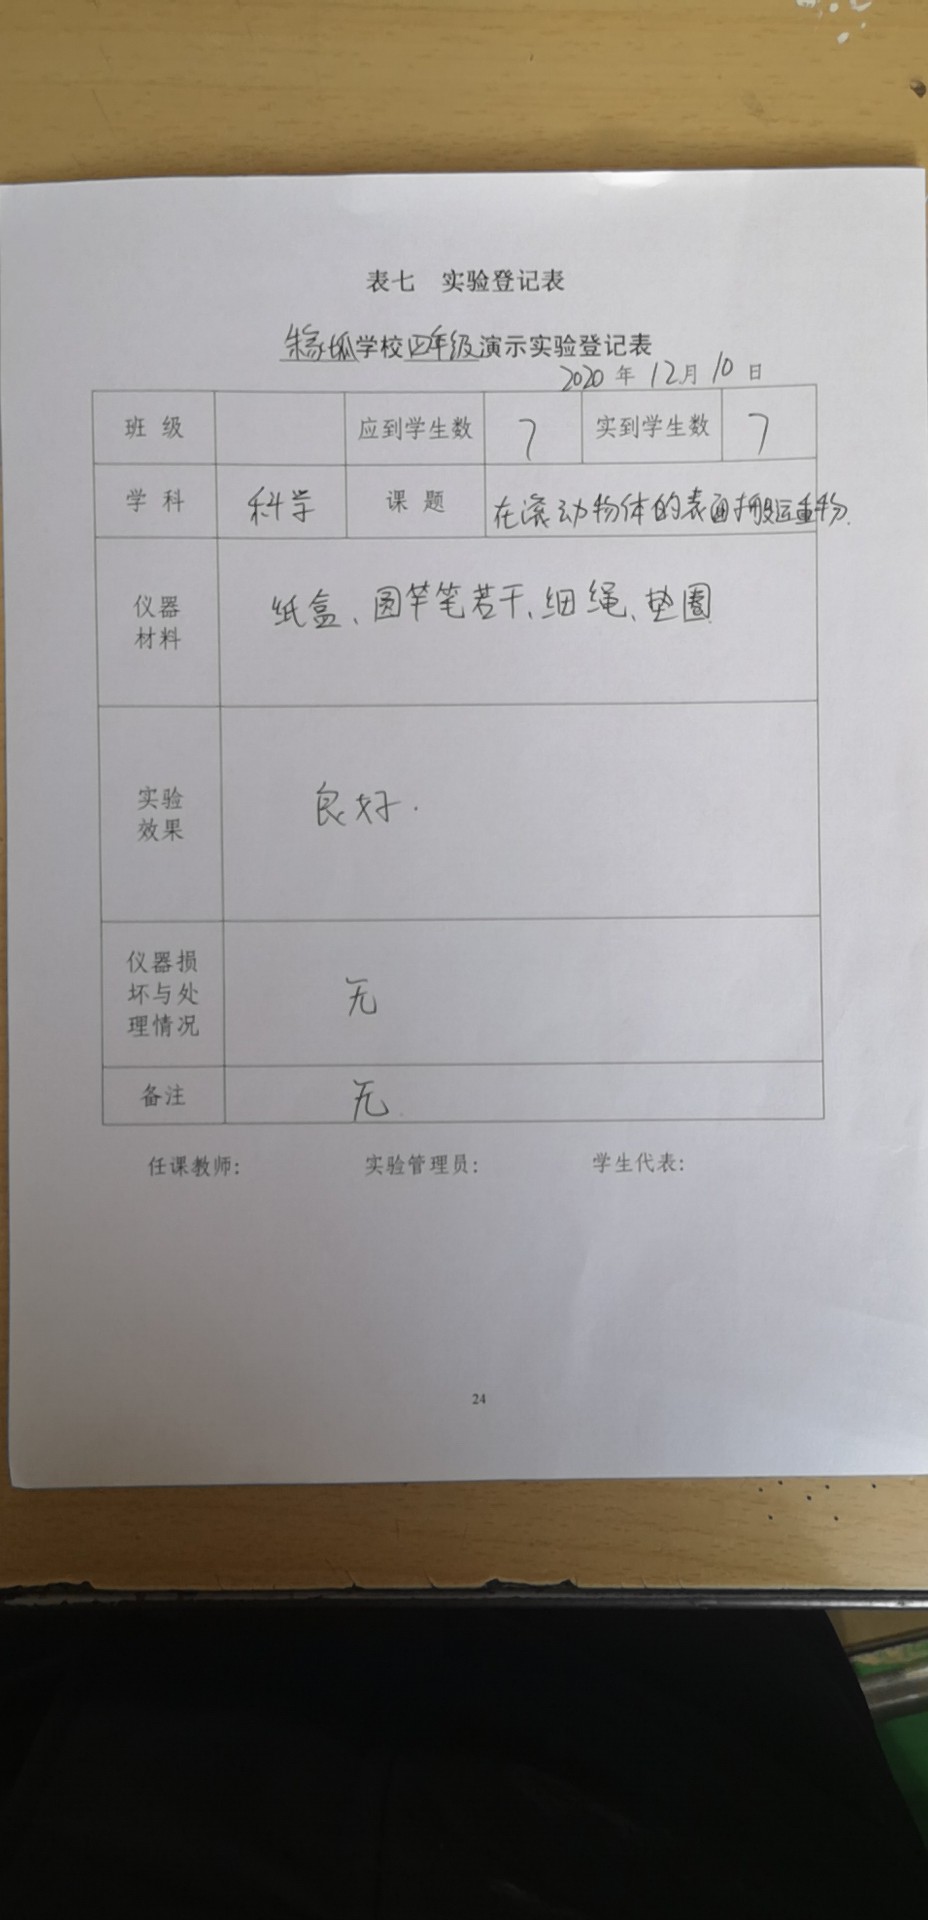 表七 实验登记表
学校四年级演示实验登记表
2020 年 12 月 10 日
班 级 应到学生数 7 实到学生数 7
学 科 科学 课 题 在滚动物体的表面搬运重物.
仪器
材料
纸盒、圆竿笔若干、细绳、垫圈
实验
效果
良好.
仪器损
坏与处
理情况
无
备注 无
任课教师: 实验管理员: 学生代表:
24